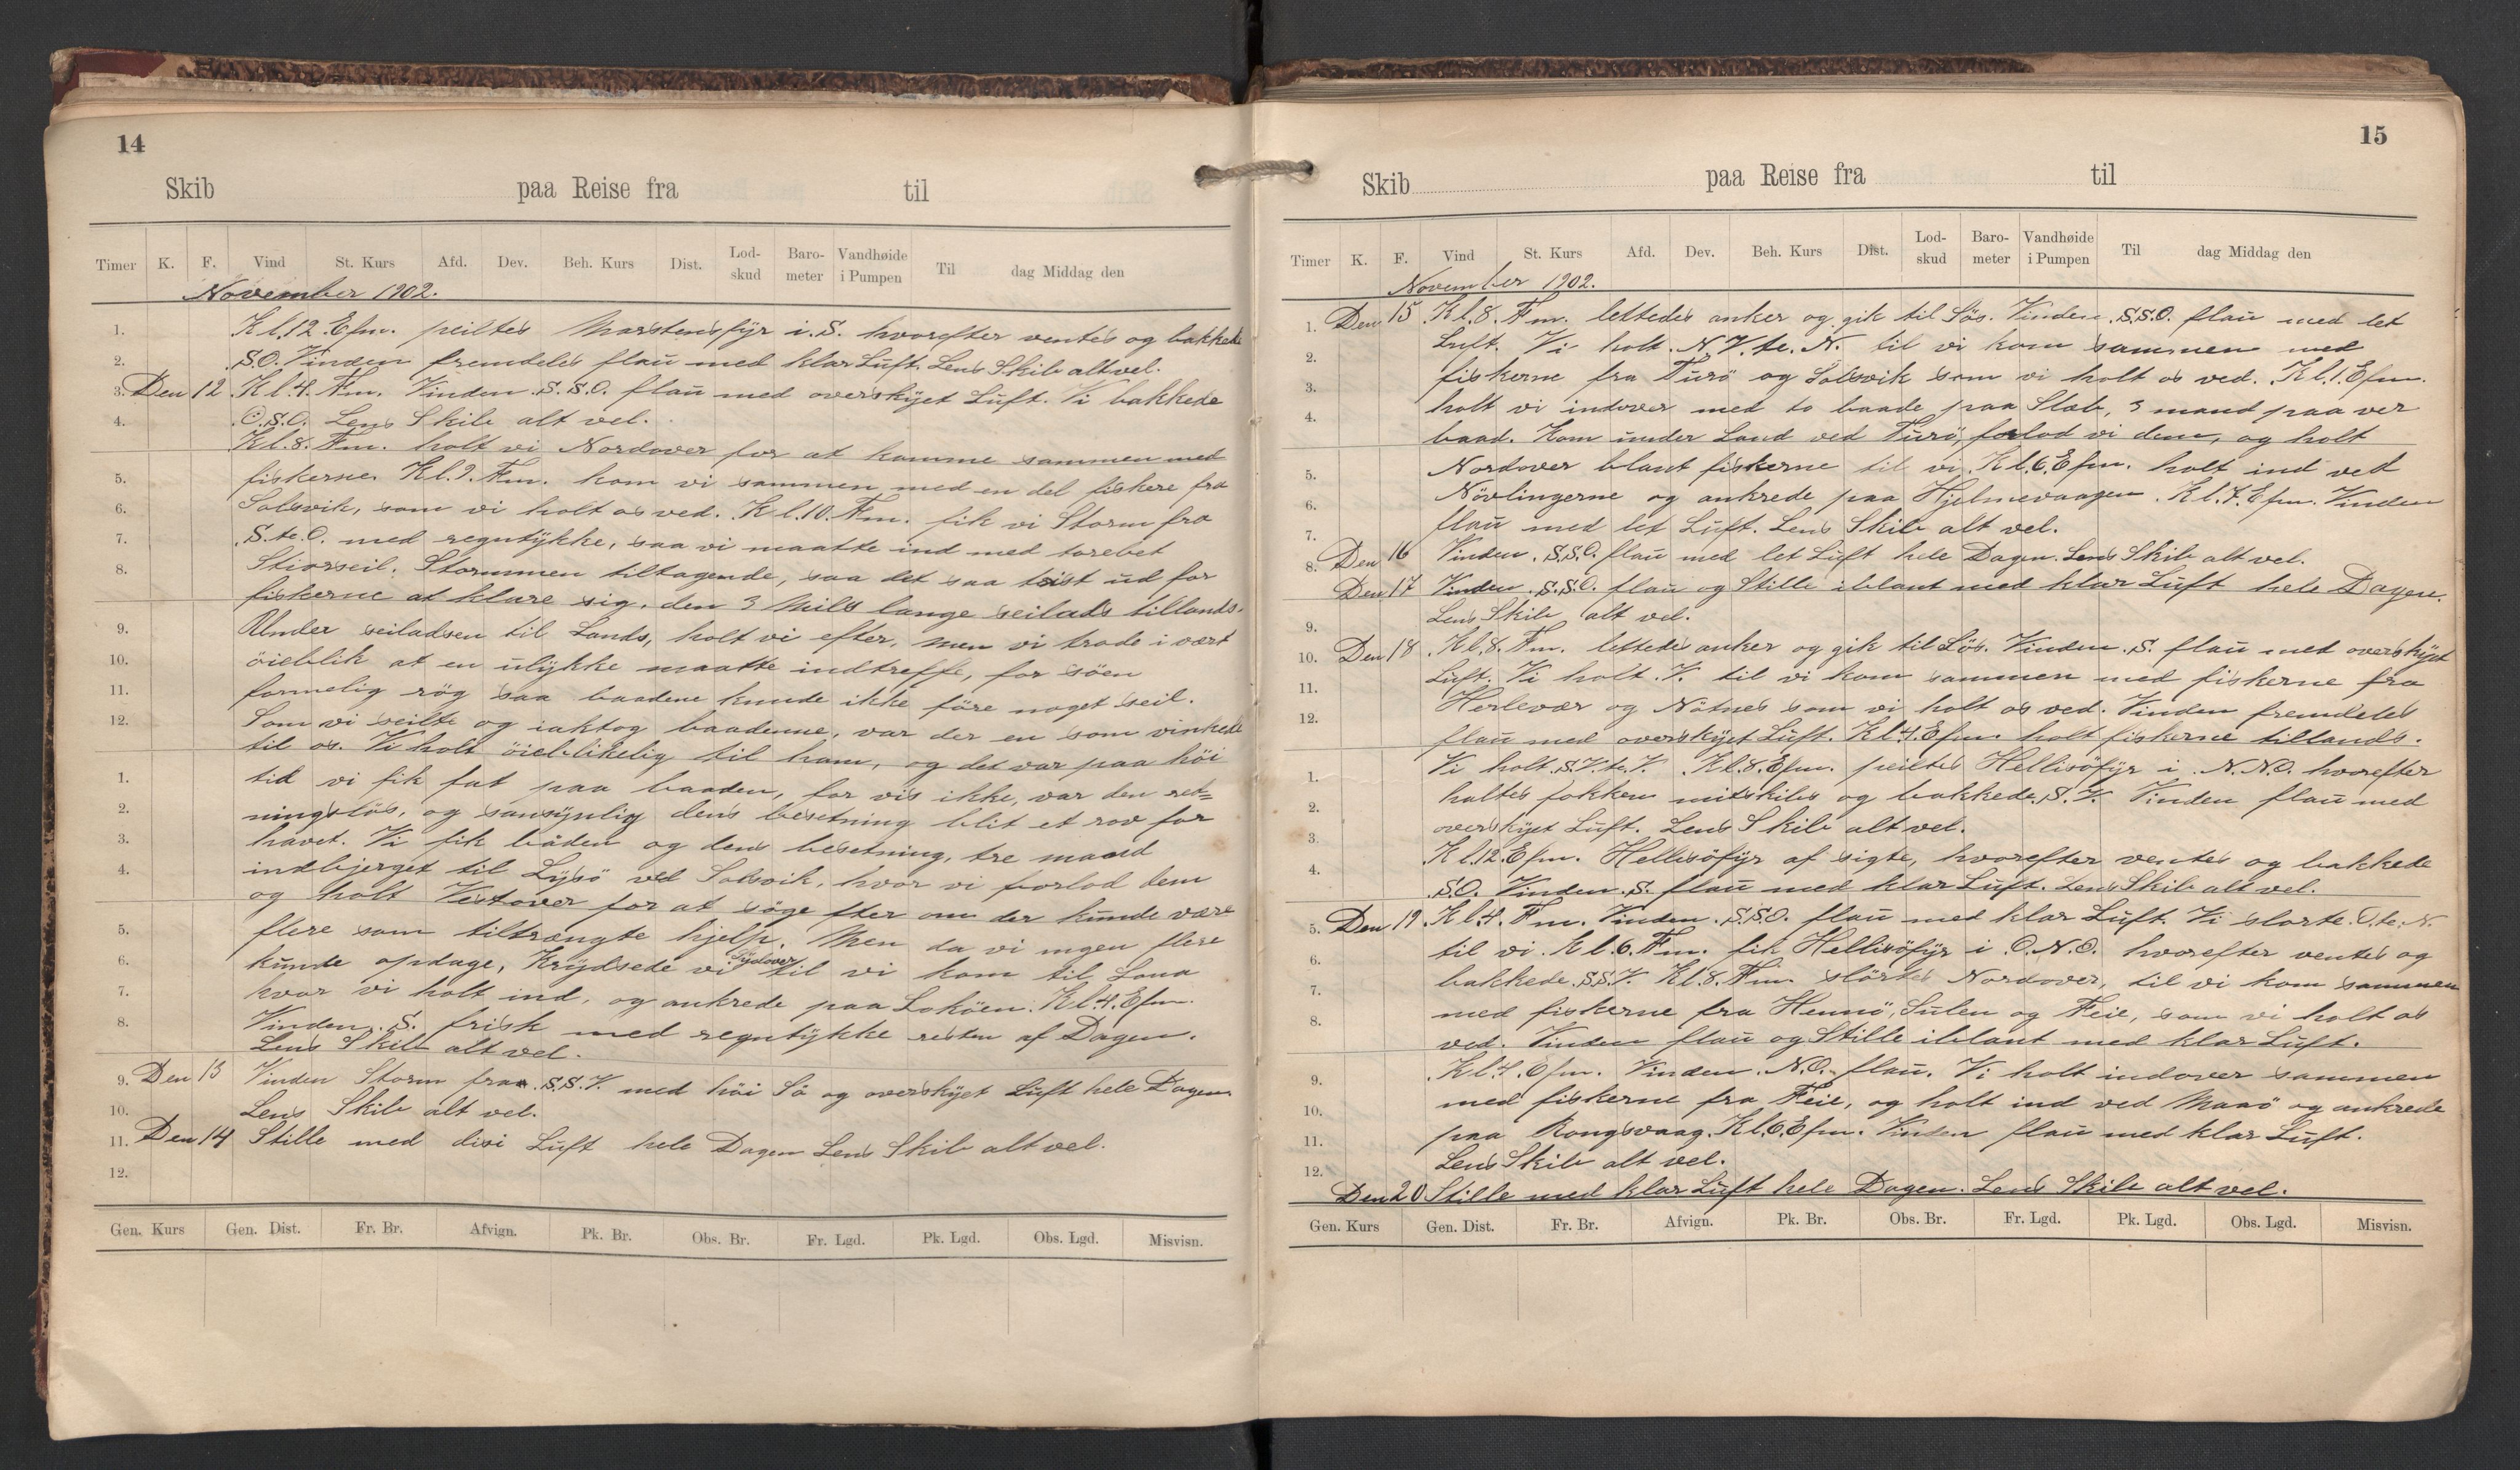 14
Skib paa Reise fra til
Timer K. F. Vind St. Kurs Afd. Dev. Beh. Kurs Dist. Lod-skud Baro-meter Vandhøide i Pumpen Til dag Middag den
November 1902.
1. Kl. 12. Efm. peiltes Marstensfÿr i. S. hvorefter ventes og bakkede
2. S.O. Vinden fremdeles flaü med klar Lüft. Lens Skib alt vel.
3. Den 12 Kl. 4. Fm. Vinden. S.S.O. flaü med overskÿet Lüft. Vi bakkede
4. O.S.O. Lens Skib alt vel.
Kl. 8. Fm. holt vi Nordover for at komme sammen med
5. fiskerne. Kl. 9. Fm. kom vi sammen med en del fiskere fra
6. Solsvik, som vi holt os ved. Kl. 10. Fm. fik vi Storm fra
7. S.te.O. med regntÿkke, saa vi maatte ind med torebet
8. Storseil. Stormmen tiltagende, saa det saa trist üd for
fiskerne at klare sig, den 3 Mils lange seilads tillands.
9. Ünder seiladsen til Lands, holt vi efter, men vi trode i vært
10. öieblik at en ulÿkke maatte indtreffe, for söen
11. formelig rög saa baadene kunde ikke före noget seil.
12. Som vi seilte og iaktog baadenne, var der en som vinkede
til os. Vi holt öieblikelig til ham, og det var paa höi
1. tid vi fik fat paa baaden, for vis ikke, var den ret=
2. ningslös, og sansÿnlig dens besetning blit et rov for
3. havet. Vi fik båden og dens besetning, tre mand
4. indbjerget til Lÿsö ved Solsvik, hvor vi forlod dem
og holt Vestover for at söge efter om der kunde være
5. flere som tiltrængte hjelp. Men da vi ingen flere
6. künde opdage, Krÿdsede vi Sÿdover til vi kom til Sona
7. hvor vi holt ind, og ankrede paa Loköen. Kl. 4. Efm.
8. Vinden. S. frisk med regntÿkke resten af Dagen.
Lens Skib alt vel.
9. Den 13 Vinden Storm fra. S.S.V. med höi Sö og overskÿet Lüft hele Dagen
10. Lens Skib alt vel.
11. Den 14 Stille med disi Lüft hele Dagen Lens Skib alt vel.
12.
Gen. Kurs Gen. Dist. Fr. Br. Afvign. Pk. Br. Obs. Br. Fr. Lgd. Pk. Lgd. Obs. Lgd. Misvisn.
15
Skib paa Reise fra til
Timer K. F. Vind St. Kurs Afd. Dev. Beh. Kurs Dist. Lod-skud Baro-meter Vandhøide i Pumpen Til dag Middag den
November 1902.
1. Den 15 Kl. 8. Fm. lettedes anker og gik til Søs. Vinden. S.S.O. flaü med let
2. Lüft. Vi holt. N.V.te.N. til vi kom sammen med
3. fiskerne fra Turö og Solsvik som vi holt os ved. Kl. 1. Efm.
4. holt vi indover med to baade paa Slæb, 3 mand paa ver
baad. Kom ünder Land ved Türö, forlod vi dem, og holt
5. Nordover blant fiskerne til vi Kl. 6. Efm. holt ind ved
6. Növlingerne og ankrede paa Hjelmevaagen. Kl. 7. Efm. Vinden
7. flaü med let Lüft. Lens Skib alt vel.
8. Den 16 Vinden. S.S.O. flaü med let Lüft hele Dagen. Lens Skib alt vel.
Den 17 Vinden. S.S.O. flaü og Stille iblant med klar Lüft hele Dagen.
9. Lens Skib alt vel.
10. Den 18 Kl. 8. Fm. lettedes anker og gik til Søs. Vinden. S. flaü med overskÿet
11. Lüft. Vi holt. V. til vi kom sammen med fiskerne fra
12. Herlevær og Nötnes som vi holt os ved. Vinden fremdeles
flaü med overskÿet Lüft. Kl. 4. Efm. holt fiskerne tillands.
1. Vi holt. S.V.te.V. Kl. 8. Efm. peiltes Hellisöfÿr i N.N.O. hvorefter
2. haltes fokken mitskibs og bakkede. S.V. Vinden flaü med
3. overskÿet Lüft. Lens Skib alt vel.
Kl. 12. Efm. Hellisöfÿr af sigte, hvorefter ventes og bakkede
4. S.O. Vinden. S. flaü med klar Lüft. Lens Skib alt vel.
5. Den 19 Kl. 4. Fm. Vinden. S.S.O. flaü med klar Lüft. Vi slorte. O.te.N.
6. til vi. Kl. 6. Fm. fik Hellisöfÿr i O.N.O. hvorefter ventes og
7. bakkede. S.S.V. Kl. 8. Fm. slörtes Nordover, til vi kom sammen
8. med fiskerne fra Hennö, Sülen og Feie, som vi holt os
ved. Vinden flaü og Stille iblant med klar Lüft.
9. Kl. 4. Efm. Vinden. N.O. flaü. Vi holt indover sammen
10. med fiskerne fra Feie, og holt ind ved Maasö og ankrede
11. paa Rongsvaag. Kl. 6. Efm. Vinden flaü med klar Lüft.
12. Lens Skib alt vel.
Den 20 Stille med klar Lüft hele Dagen. Lens Skib alt vel.
Gen. Kurs Gen. Dist. Fr. Br. Afvign. Pk. Br. Obs. Br. Fr. Lgd. Pk. Lgd. Obs. Lgd. Misvisn.